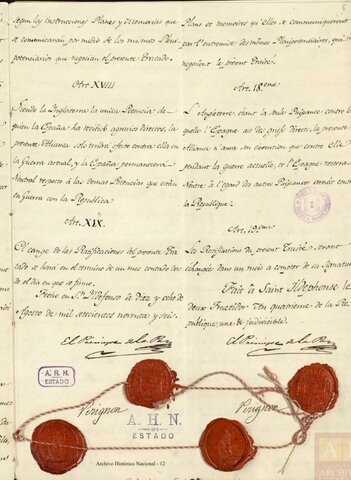 segun las Instrucciones Planes y Memorias que
se comunicarán por medio de los mismos Pleni-
potenciarios que negocian el presente Tratado.
Art. XVIII
Siendo la Inglaterra la unica Potencia de
quien la España ha recibido agravios directos, la
presente Alianza solo tendrá efecto contra ella en
la Guerra actual, y la España permanecerá
Neutral respecto à las demas Potencias que estan
en Guerra con la Republica.
Art. XIX.
El cange de las Ratificaciones del presente Tra-
tado se hará en el termino de un mes contado des-
de el dia en que se firme.
Fecho en Sn. Ildefonso à diez y ocho de
Agosto de mil setecientos noventa y seis.
El Principe de la Paz
Perignon
Plans et memoires qu'elles se communiqueront
par l'entremise des mêmes Plenipotentiaires, qui
negocient le present Traité.
Art. 18.eme
L'Angleterre, étant la seule Puissance contre la-
quelle l'Espagne ait des griefs directs, la presente
Alliance n'aura son execution que contre elle
pendant la guerre actuelle, et l'Espagne restera
Neutre à l'egard des autres Puissances armées contre
la Republique.
Art. 19.eme
Les Ratifications du present Traité seront
echangées dans un mois à compter de sa signature.
Fait à Saint Ildephonse le
deux Fructidor An quatrieme de la Re-
publique une & indivisible.
El Principe de la Paz
Perignon
A.H.N.
ESTADO
A. H. N.
ESTADO
Archivo Histórico Nacional - 12